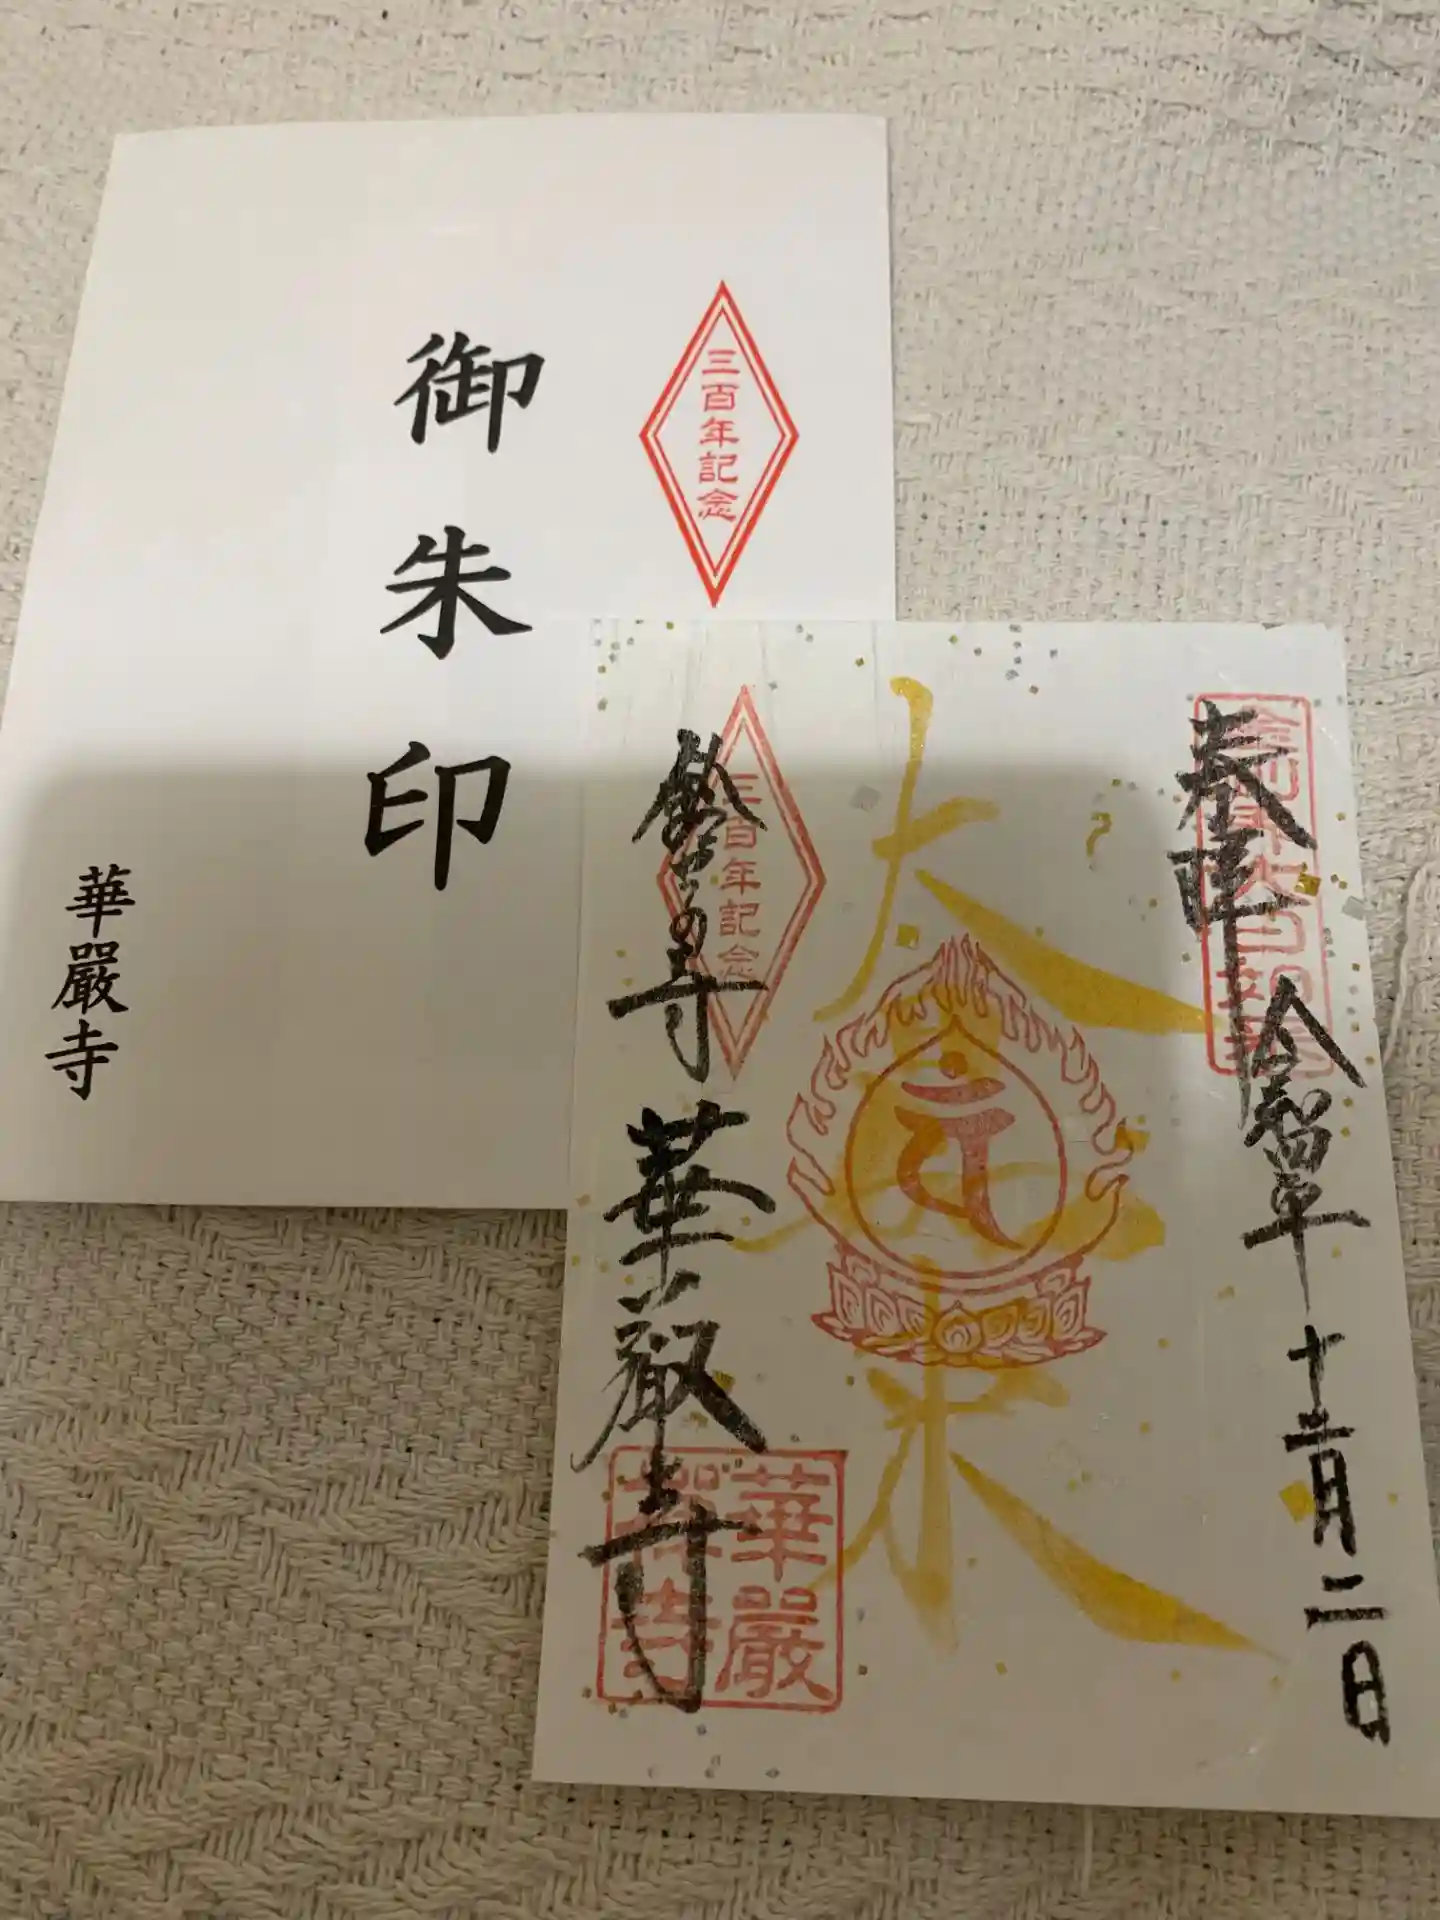 三百年記念
御朱印
華嚴寺
奉拝
令和四年十二月二日
大日如来
三百年記念
鈴虫の寺
華厳寺
華嚴禅寺